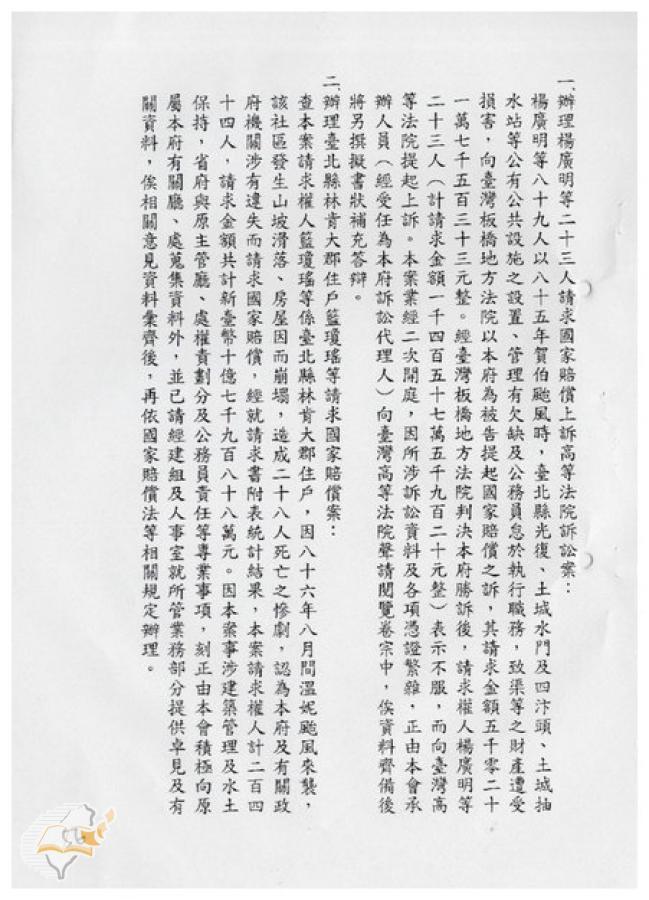 一、辦理楊廣明等二十三人請求國家賠償上訴高等法院訴訟案：
楊廣明等八十九人以八十五年賀伯颱風時，臺北縣光復、土城水門及四汴頭、土城抽
水站等公有公共設施之設置、管理有欠缺及公務員怠於執行職務，致渠等之財產遭受
損害，向臺灣板橋地方法院以本府為被告提起國家賠償之訴，其請求金額五千零二十
一萬七千五百三十三元整。經臺灣板橋地方法院判決本府勝訴後，請求權人楊廣明等
二十三人（計請求金額一千四百五十七萬五千九百二十元整）表示不服，而向臺灣高
等法院提起上訴。本案業經二次開庭，因所涉訴訟資料及各項憑證繁雜，正由本會承
辦人員（經受任為本府訴訟代理人）向臺灣高等法院聲請閱覽卷宗中，俟資料齊備後
將另撰擬書狀補充答辯。
二、辦理臺北縣林肯大郡住戶籃瓊瑤等請求國家賠償案：
查本案請求權人籃瓊瑤等係臺北縣林肯大郡住戶，因八十六年八月間溫妮颱風來襲，
該社區發生山坡滑落、房屋因而崩塌，造成二十八人死亡之慘劇，認為本府及有關政
府機關涉有違失而請求國家賠償，經就請求書附表統計結果，本案請求權人計二百四
十四人，請求金額共計新臺幣十億七千九百八十八萬元。因本案事涉建築管理及水土
保持，省府與原主管廳、處權責劃分及公務員責任等專業事項，刻正由本會積極向原
屬本府有關廳、處蒐集資料外，並已請經建組及人事室就所管業務部分提供卓見及有
關資料，俟相關意見資料彙齊後，再依國家賠償法等相關規定辦理。
56